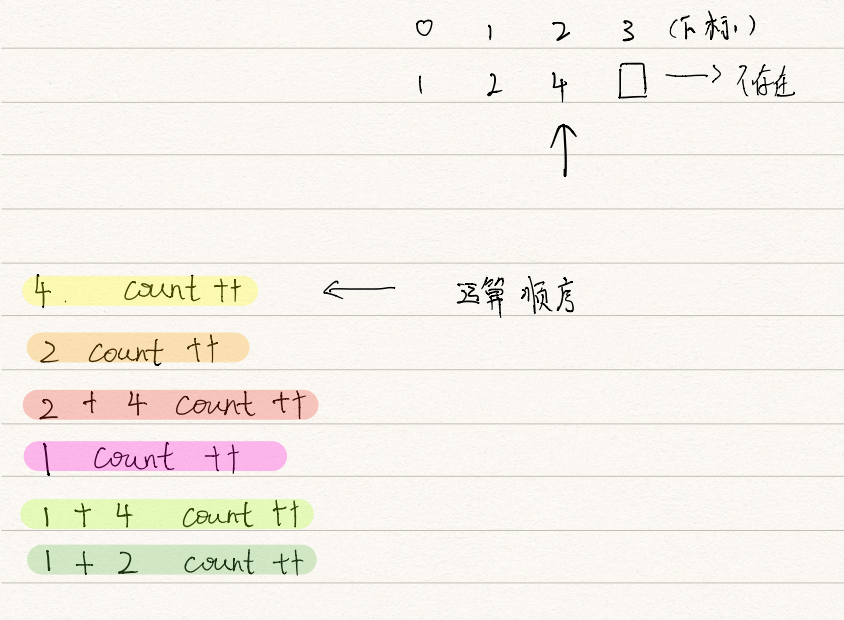 0 1 2 3 (下标)
1 2 4 □ → 不存在
↑
4. count ++ ← 运算顺序
2 count ++
2 + 4 count ++
1 count ++
1 + 4 count ++
1 + 2 count ++